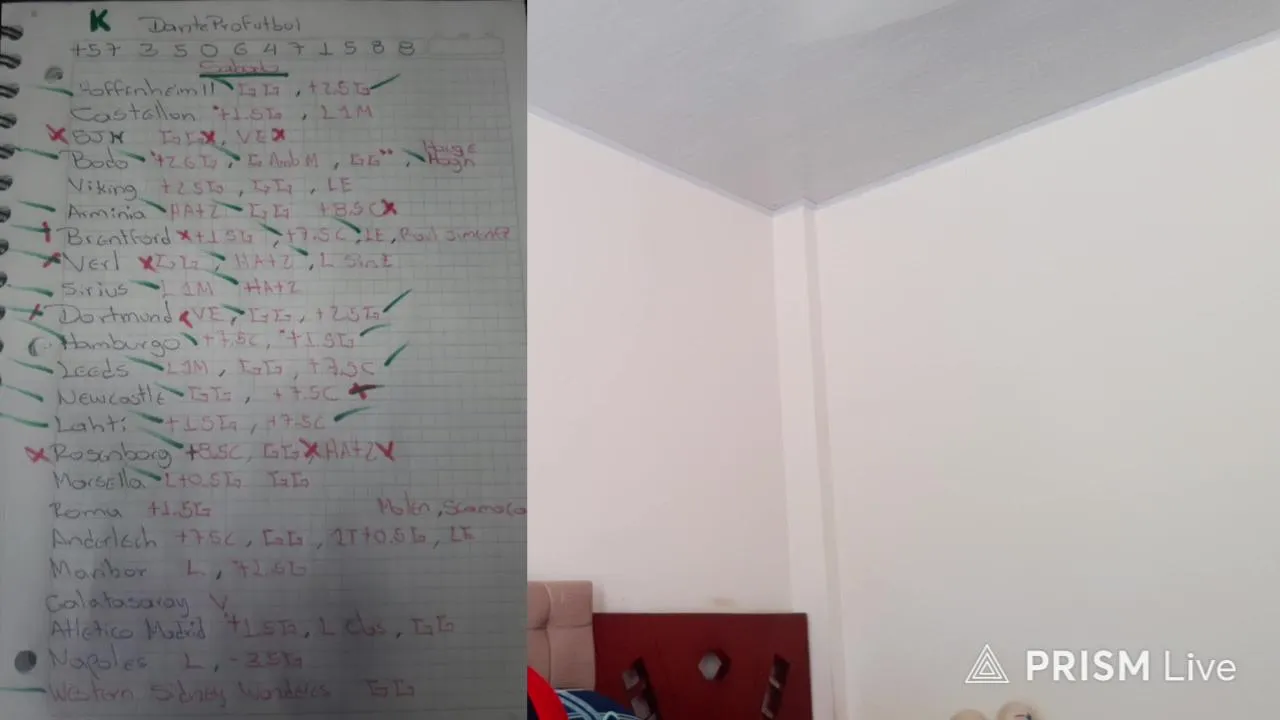 K DanteProFutbol
+57 3 5 0 6 4 7 1 5 8 8
Sabado
Hoffenheim II GG, +2.5G
Castellon "+1.5G, L1M
GG, VE
Bodo "+2.6G, GAmbM, GG", Hauge Hogh
Viking +2.5G, GG, LE
Arminia HA+2 GG +8.5C
Brentford +1.5G, +7.5C, LE, Raul Jimenez
Verl GG, HA+2, L SinE
Sirius L1M HA+2
Dortmund VE, GG, +2.5G
Hamburgo +7.5C, "+1.5G
Leeds L1M, GG, +7.5C
Newcastle GG, +7.5C
Lahti +1.5G, +7.5C
Rosenborg +8.5C, GG HA+2
Marsella L+0.5G GG
Roma +1.5G Malen, Scamaca
Anderlech +7.5C, GG, 2T+0.5G, LE
Maribor L, +1.5G
Galatasaray V
Atletico Madrid "+1.5G, L cbs, GG
Napoles L, -3.5G
Western Sidney Wanderes GG
PRISM Live